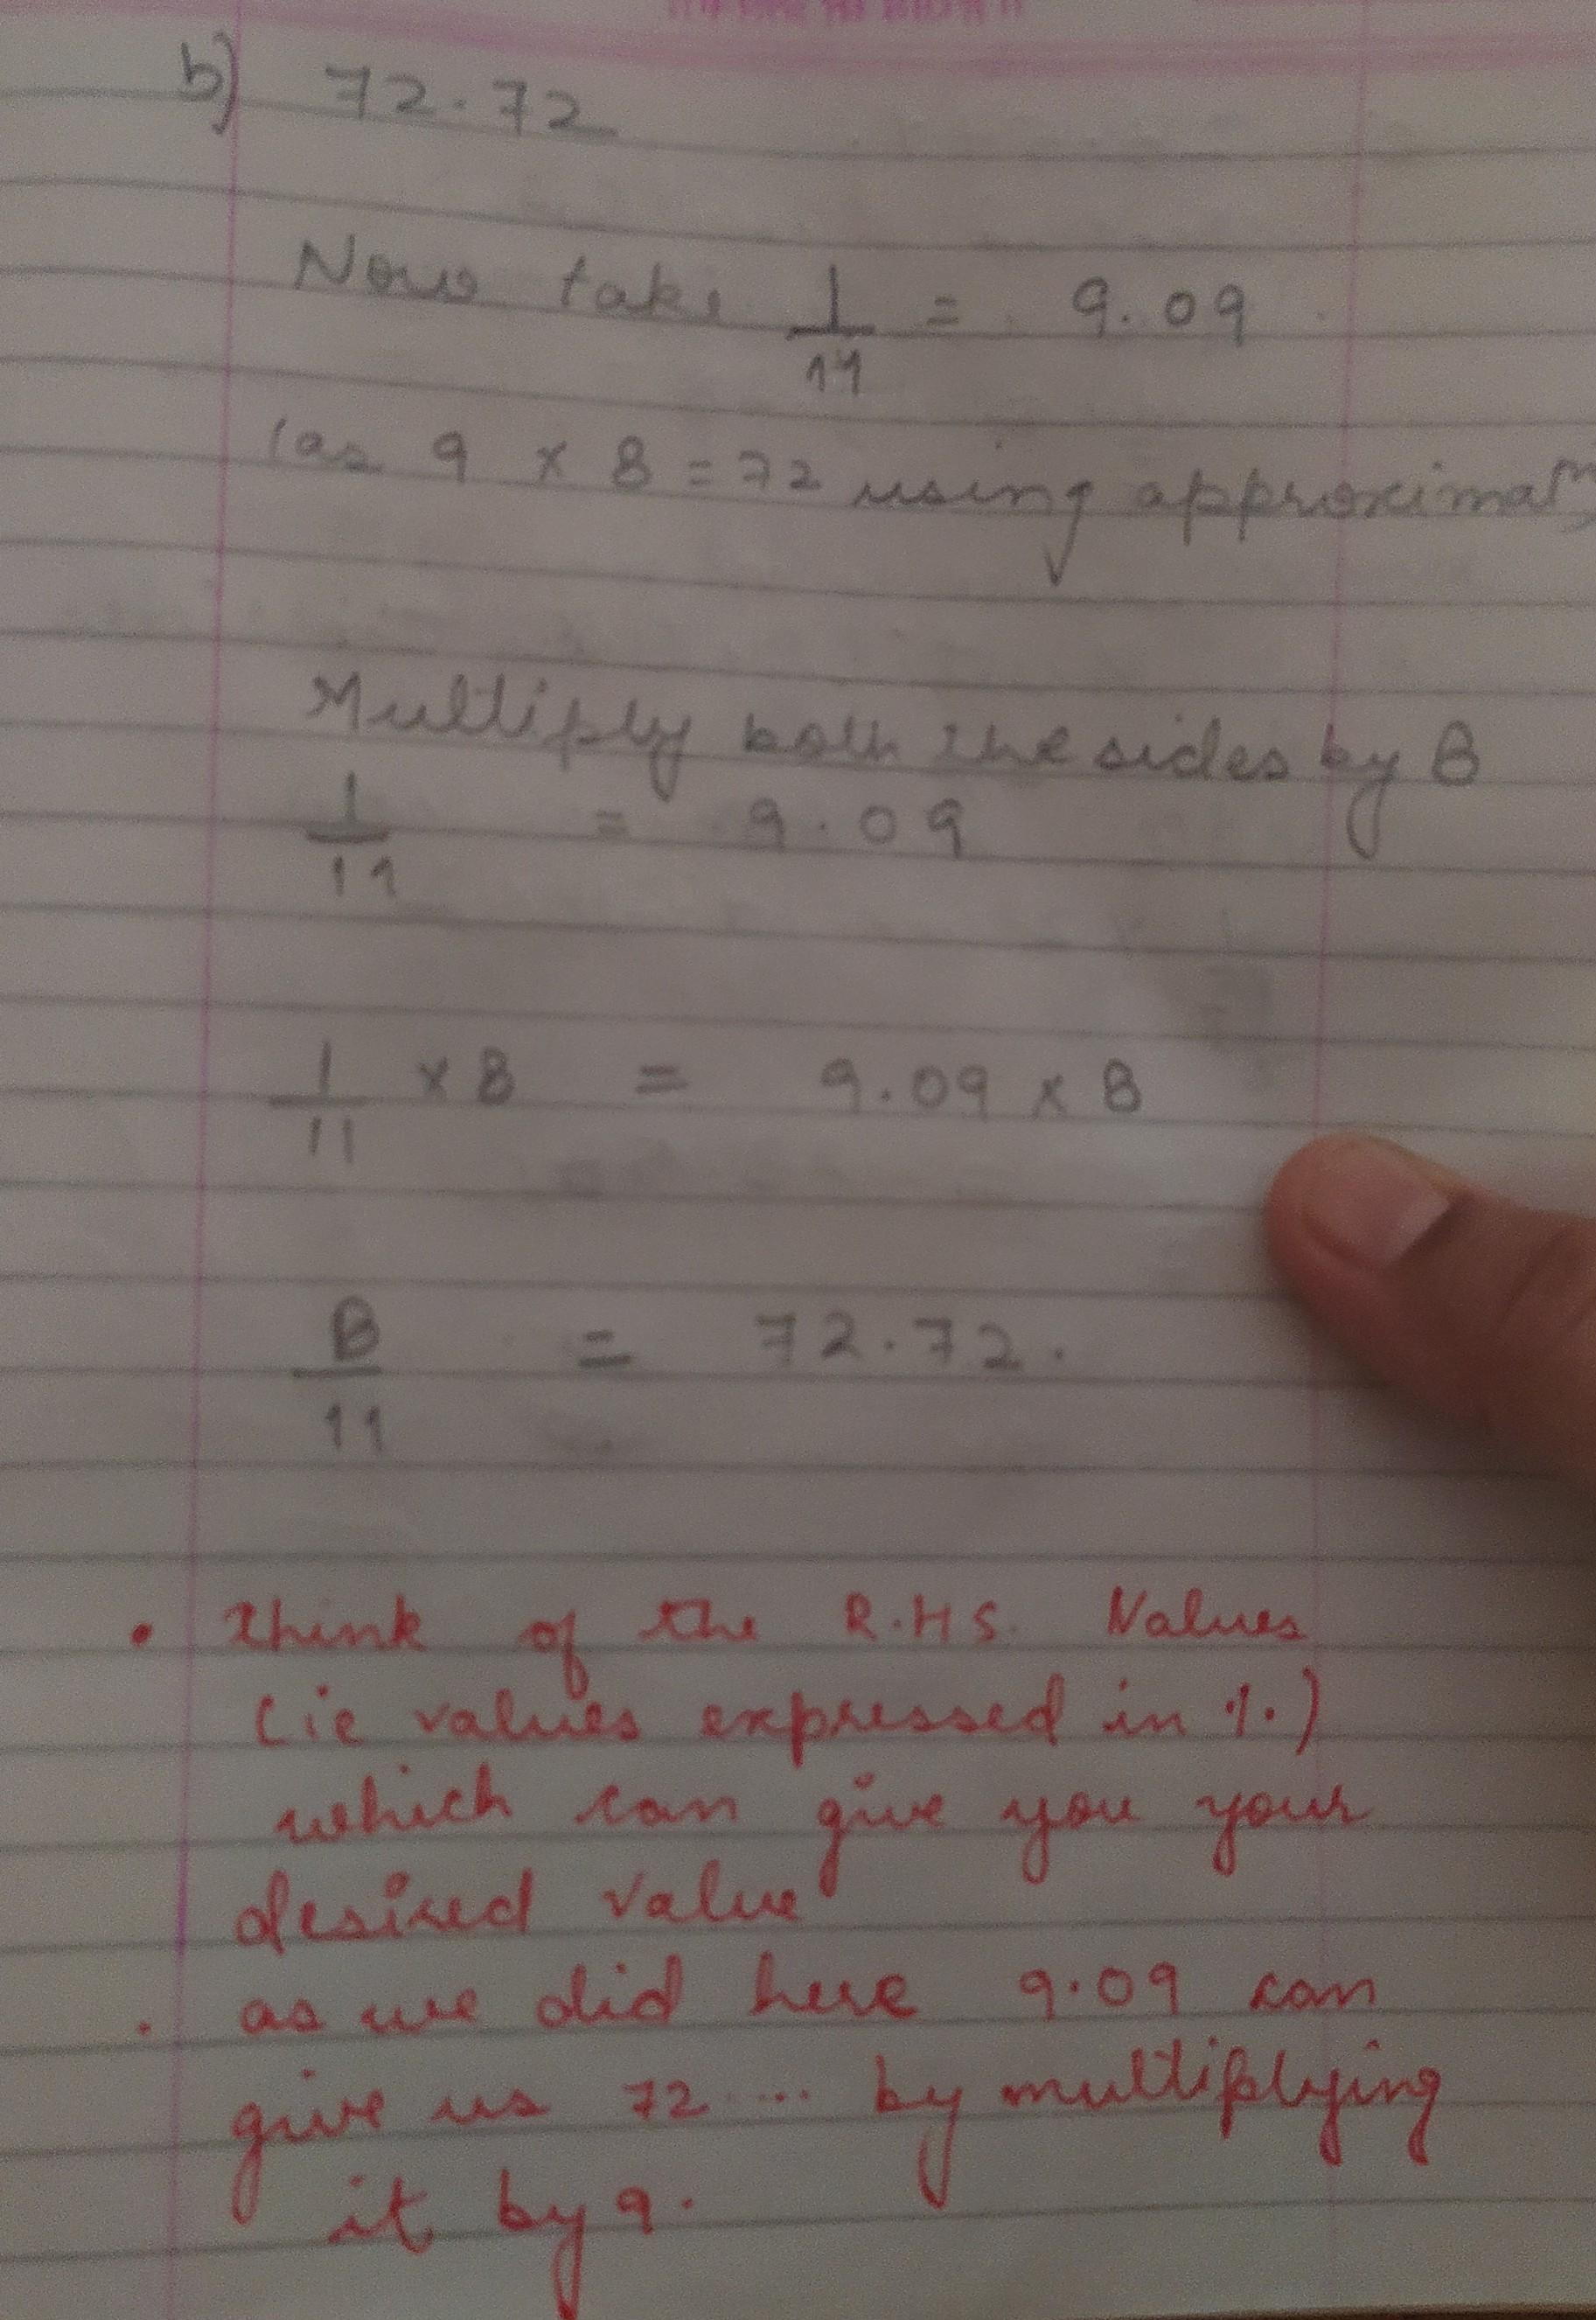 b) 72.72
Now take 1/11 = 9.09
(as 9 x 8 = 72 using
Multiply both the sides by 8
1/11 = 9.09
1/11 x 8 = 9.09 x 8
8/11 = 72.72.
• Think of the R.H.S. Values
(ie values expressed in %)
which can give you your
desired value
• as we did here 9.09 can
give us 72 ... by multiplying
it by 9.